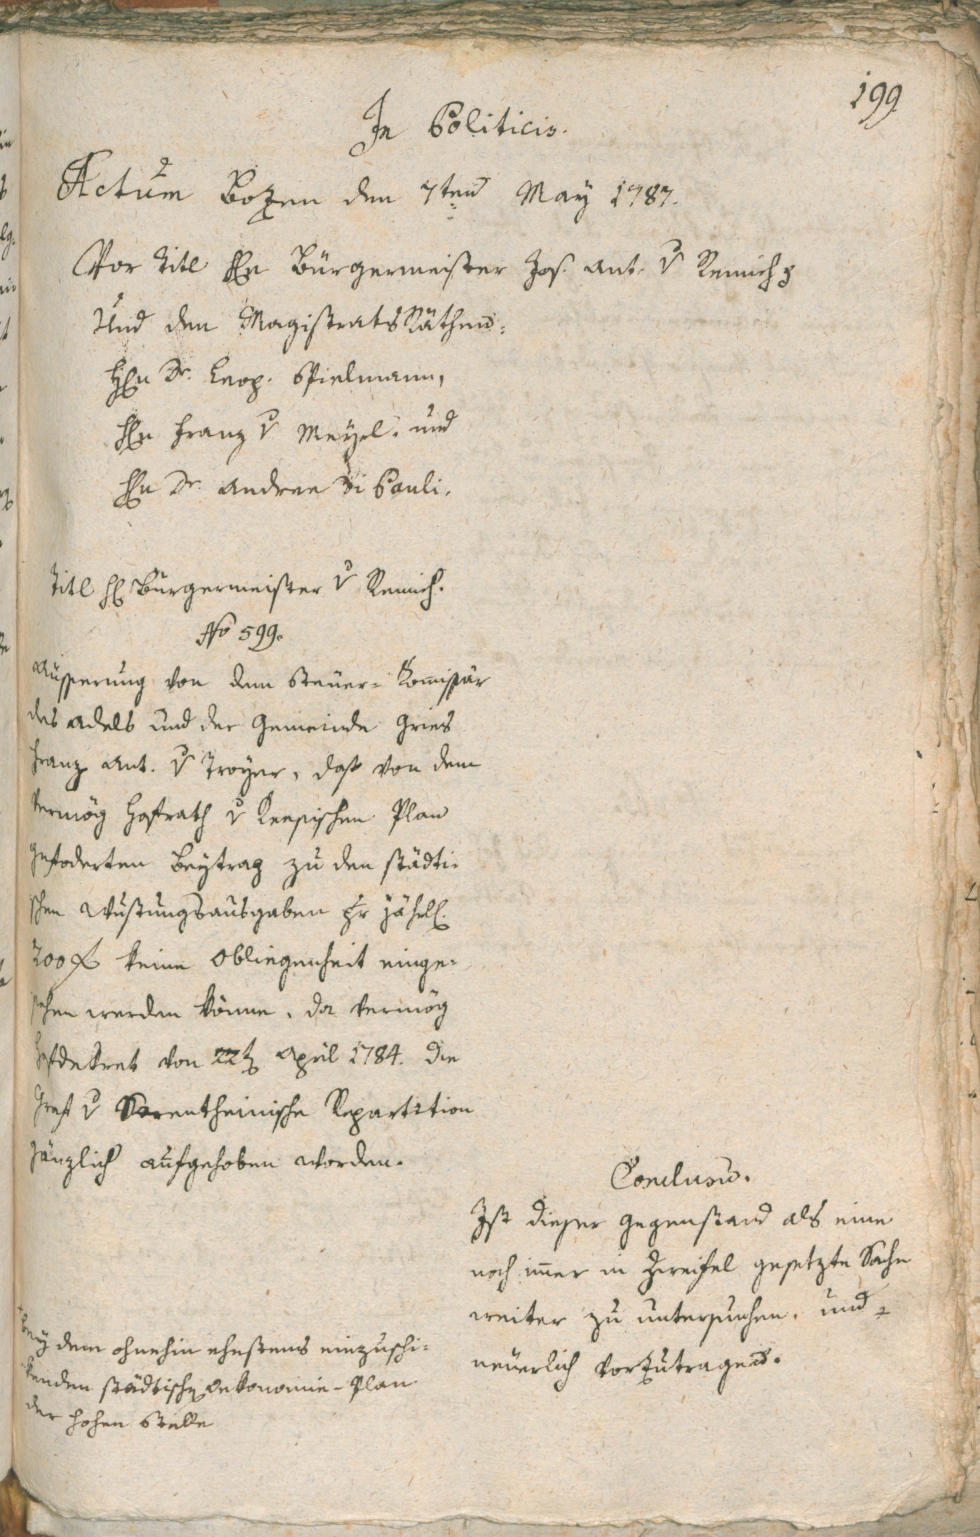 199
In Politicis.
Actum Bozen den 7ten May 1787.
Vor Titl Hn Bürgermeister Jos. Ant. v Remich
Und den Magistrats Räthen:
Hn Dr. Leop. Spielmann,
Hn Franz v Meyrl. und
Hn Dr. Andree Di Pauli.
Titl H Bürgermeister v Remich.
No 599.
Äusserung von dem Steuer-Komissär
des Adels und der Gemeinde Gries
Franz Ant. v Troyer, daß von dem
vermög Hofrath v Plan
gefoderten Beytrag zu den städti-
schen Wustungsausgaben pr jährl.
200 f keine Obliegenheit einge-
sehen werden könne, da vermög
Hofdekret von 22t April 1784. die
Graf v Sarentheinische Repartition
gänzlich aufgehoben worden.
Conclusum.
Ist dieser Gegenstand als eine
noch immer in Zweifel gesetzte Sache
weiter zu untersuchen, und
neuerlich vorzutragen.
bey dem ohnehin ehestens einzuschi-
kenden städtischen Oekonomie-Plan
der hohen Stelle